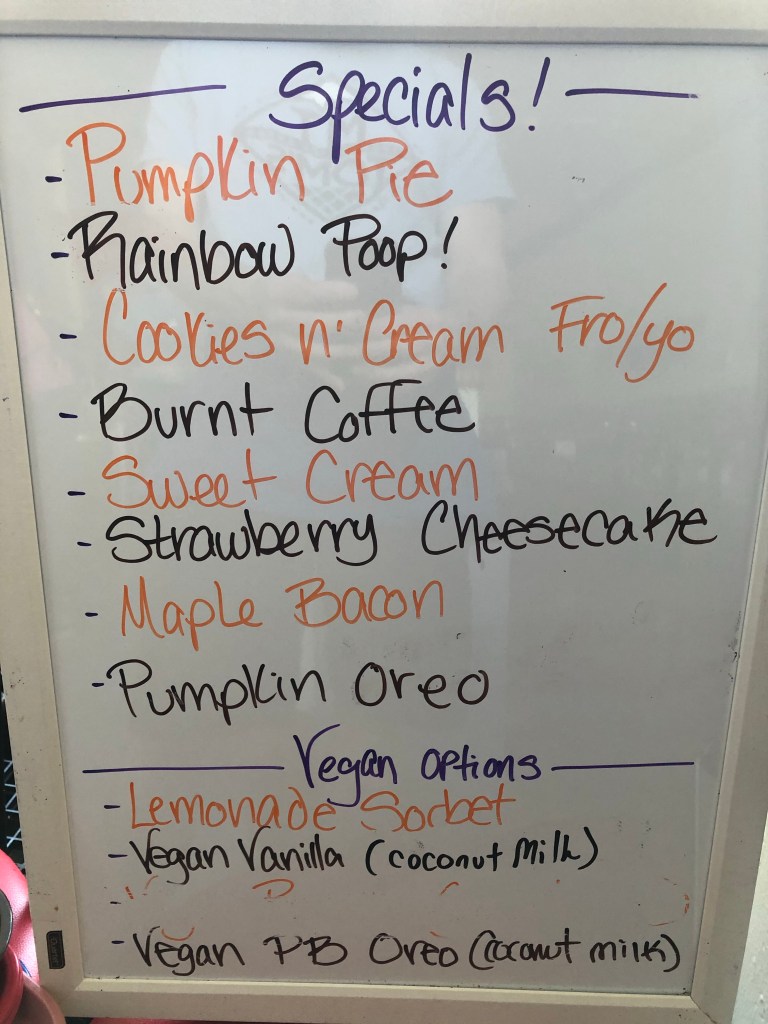 Specials!
- Pumpkin Pie
- Rainbow Poop!
- Cookies n' Cream Fro/yo
- Burnt Coffee
- Sweet Cream
- Strawberry Cheesecake
- Maple Bacon
- Pumpkin Oreo
Vegan Options
- Lemonade Sorbet
- Vegan Vanilla (coconut milk)
-
- Vegan PB Oreo (coconut milk)